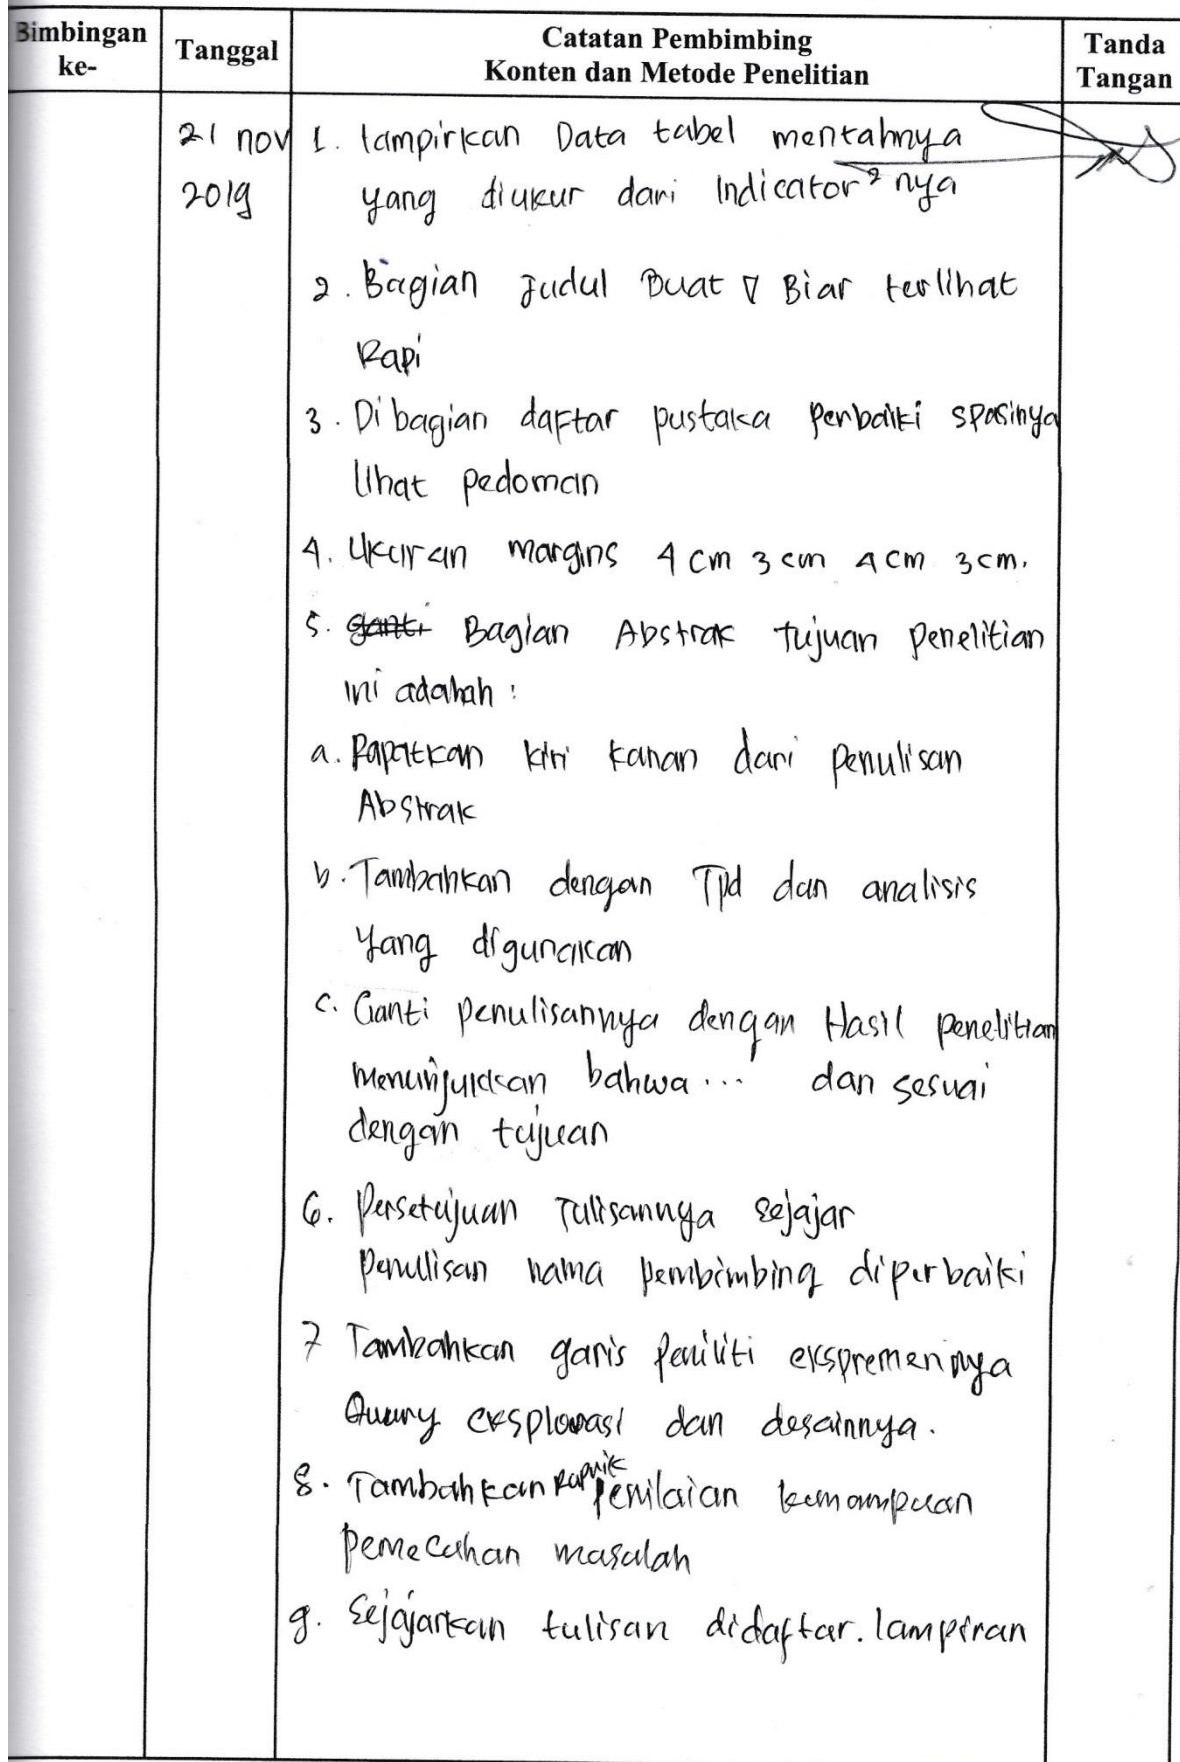 Bimbingan ke-
Tanggal
Catatan Pembimbing
Konten dan Metode Penelitian
Tanda Tangan
21 nov
2019
1. lampirkan Data tabel mentahnya
yang diukur dari Indicator² nya
2. Bagian Judul Buat ∇ Biar terlihat
Rapi
3. Di bagian daftar pustaka perbaiki spasinya
lihat pedoman
4. Ukuran margins 4 cm 3 cm 4 cm 3 cm.
5. ganti Bagian Abstrak tujuan penelitian
ini adalah :
a. Rapatkan kiri kanan dari penulisan
Abstrak
b. Tambahkan dengan Tpd dan analisis
yang digunakan
c. Ganti penulisannya dengan Hasil penelitian
menunjukkan bahwa... dan sesuai
dengan tujuan
6. Persetujuan Tulisannya sejajar
penulisan nama pembimbing diperbaiki
7 Tambahkan garis peniliti ekspremennya
eksplorasi dan desainnya.
8. Tambahkan penilaian kemampuan
pemecahan masalah
9. Sejajarkan tulisan didaftar. lampiran